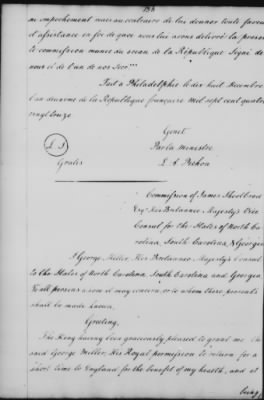 188
ni empechement mais au contraire de lui donner toute faveur
et assistance en foi de quoi nous lui avons délivré la présente
commission munie du sceau de la République. Signé de
nous et de l'un de nos Secres
Fait à Philadelphie le dix huit Decembre
l'an deuxieme de la République française mil sept cent quatre
vingt treize
Genet
L S
Par le Ministre
Gratis
L A Pichon
Commission of James Shoolbred
Esqr His Britannic Majesty's Vice
Consul for the States of North Ca-
rolina, South Carolina, & Georgia
I George Miller, His Britannic Majesty's Consul
to the States of North Carolina, South Carolina and Georgia
To all persons whom it may concern, or to whom these presents
shall be made known.
Greeting,
The King having been graciously pleased to grant me the
said George Miller, His Royal permission to return for a
short time to England for the benefit of my health, and it
being